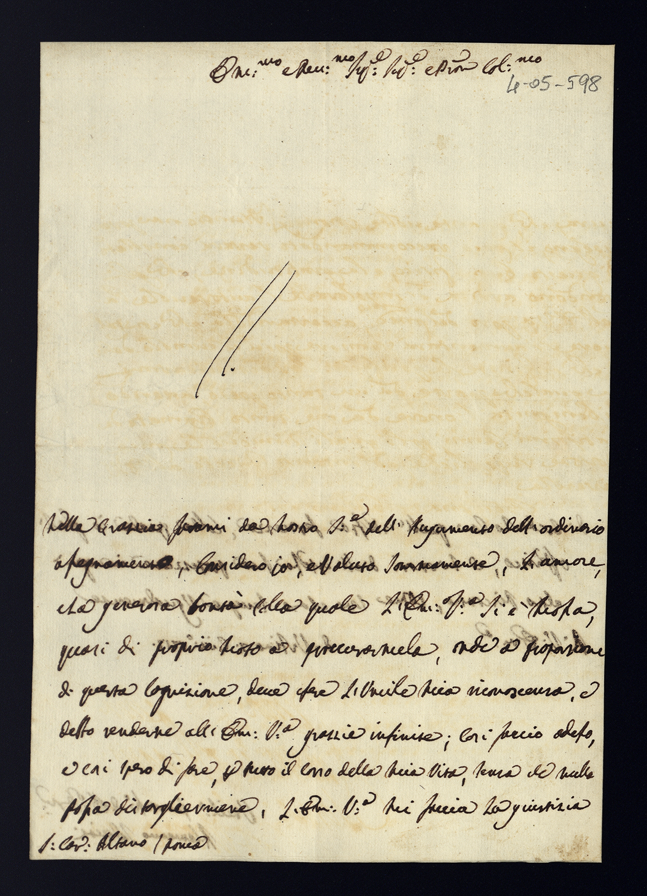 Em:mo e Rev:mo Sig:r Sig:r e Pron Col:mo
4-05-598
Nella Grazia fattami da Nostro S:e dell' Augumento dell' ordinario
assegnamento, Considero io, e Valuto Sommamente, L'amore,
e La generosa bontà Colla quale L'Em: V:a si è mossa,
quasi di proprio moto a procurarmela, onde a proporzione
di questa Cognizione, deve essere L'Umile mia riconoscenza, e
devo renderne all' Em: V:a grazie infinite; Così faccio adesso,
e così spero di fare, p tutto il Corso della mia Vita, senza che nulla
possa distogliermene. L'Em: V:a mi faccia La giustizia
S: Car: Albano / Roma